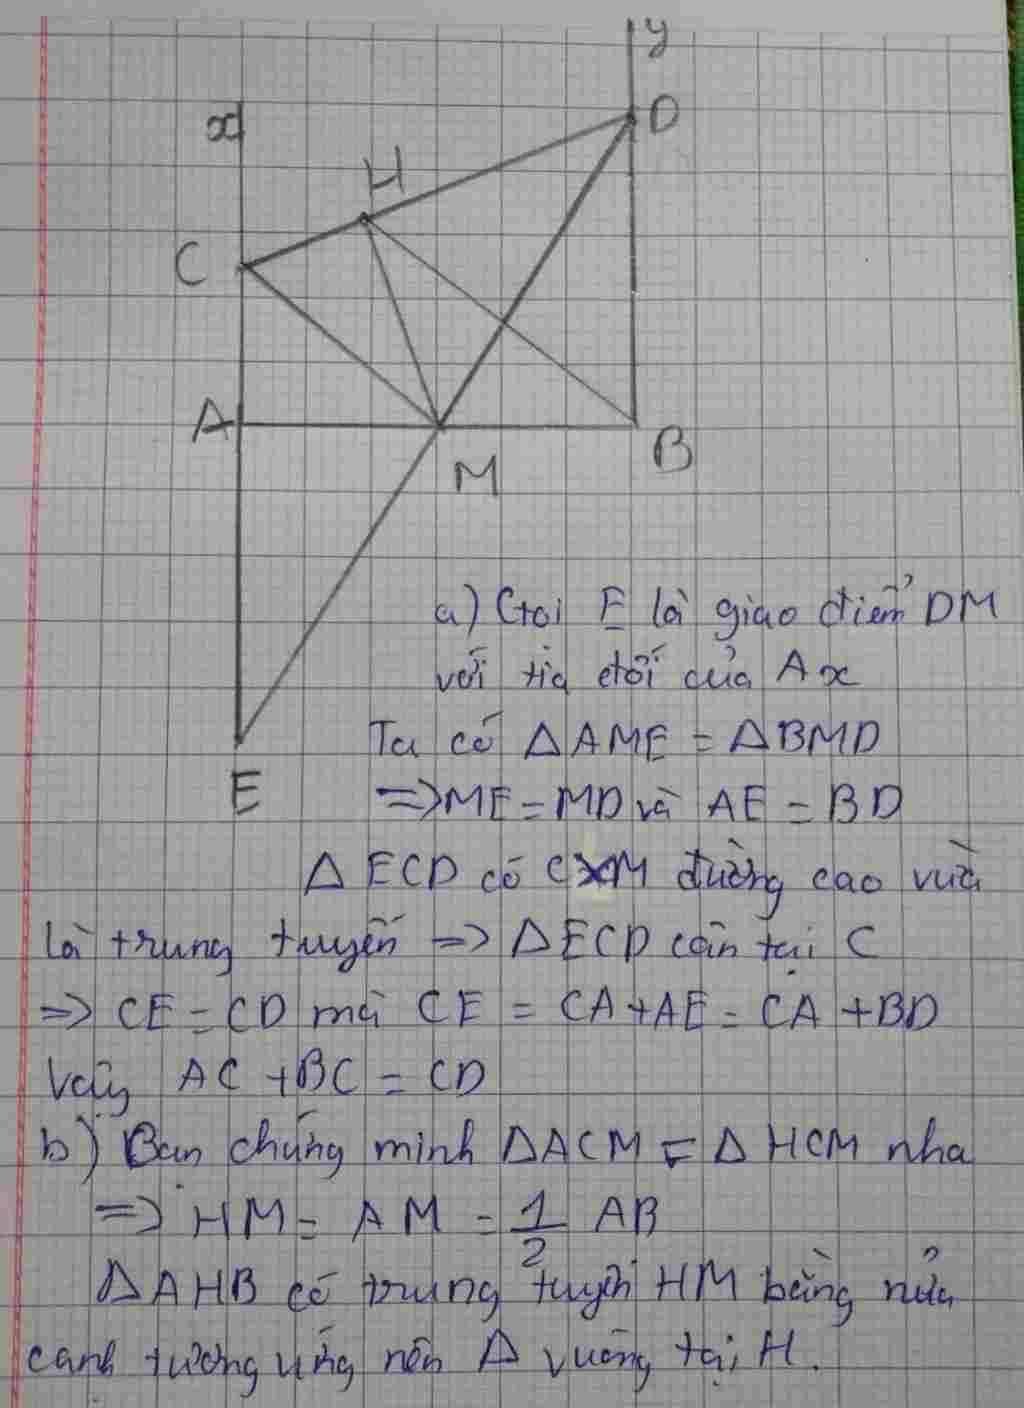 y
x
D
H
C
A
B
M
a) Gọi E là giao điểm DM
với tia đối của Ax
Ta có ΔAME = ΔBMD
E
=> ME = MD và AE = BD
ΔECD có CM đường cao vừa
là trung tuyến => ΔECD cân tại C
=> CE = CD mà CE = CA + AE = CA + BD
Vậy AC + BC = CD
b) Bạn chứng minh ΔACM = ΔHCM nha
=> HM = AM = 1/2 AB
ΔAHB có trung tuyến HM bằng nửa
cạnh tương ứng nên Δ vuông tại H.